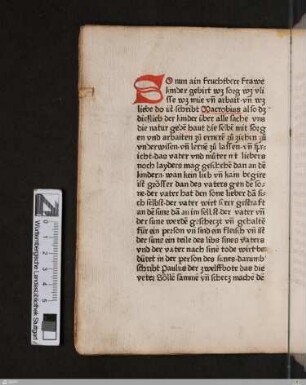 SO nun ain fruchtbere frawe
kinder gebirt wz sorg wz vli
sse wz mie vñ arbait vñ wz
liebe do ist schribt Macrobius also dz
die lieb der kinder über alle sache vns
die natur gebē haut die selbē mit sorg
en vnd arbaiten zu ernerē zu ziehen zu
vnderwisen vñ lernē zu lassen vñ spri
cht das vater vnd muter nit liebers
noch layders mag geschehē dan an dē
kindern wan kein lieb vñ kain begire
ist grösser dan des vaters gen de sö
ne der vater hat den sone lieber dā sic
h selbst der vater wirt serer gestraft
an dē sune dā an im selbst der vater vñ
der sune werdē geschetzt vñ gehaltē
für ein person vñ sind ein fleisch vñ ist
der sune ein teile des libs sines vaters
vnd der vater nach sinē tode wirt be
dütet in der person des sunes darumb
schribt Paulus der zwelffbote das die
veter söllē sammē vñ schetz machē dē
Württembergische Landesbibliothek Stuttgart